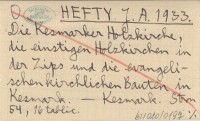 HEFTY J. A. 1933.
Die Kesmarker Holzkirche,
die einstigen Holzkirchen in
der Zips und die evangeli-
schen kirchlichen Bauten in
Kesmark. — Kesmark.
54, 16 tablic.